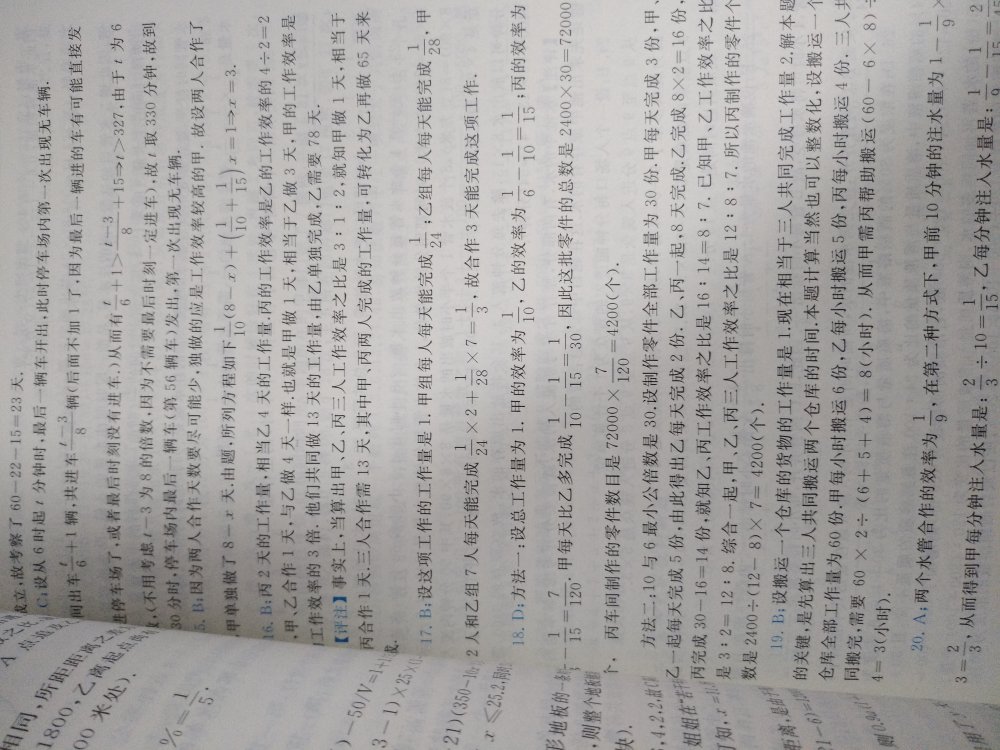 成立,故考察了 60-22-15=23 天.
C;设从 6 时起 t 分钟时,最后一辆车开出,此时停车场内第一次出现无车辆.
间出车 t/6+1 辆,共进车 (t-3)/8 辆(后面不加 1 了,因为最后一辆进的车有可能直接发
进停车场了,或者最后时刻没有进车.)从而有 t/6+1>(t-3)/8+15⇒t>327,由于 t 为 6
,(不用考虑 t-3 为 8 的倍数,因为不需要最后时刻一定进车),故 t 取 330 分钟,故到
30 分时,停车场内最后一辆车(第 56 辆车)发出,第一次出现无车辆.
5. B;因为两人合作天数要尽可能少,独做的应是工作效率较高的甲.故设两人合作了
甲单独做了 8-x 天,由题,所列方程如下 1/10(8-x)+(1/10+1/15)x=1⇒x=3.
16. B;丙 2 天的工作量,相当乙 4 天的工作量.丙的工作效率是乙的工作效率的 4÷2=2
,甲、乙合作 1 天,与乙做 4 天一样.也就是甲做 1 天,相当于乙做 3 天,甲的工作效率是
工作效率的 3 倍.他们共同做 13 天的工作量,由乙单独完成,乙需要 78 天.
【评注】事实上,当算出甲、乙、丙三人工作效率之比是 3:1:2,就知甲做 1 天,相当于
丙合作 1 天.三人合作需 13 天,其中甲、丙两人完成的工作量,可转化为乙再做 65 天来
成.
17. B;设这项工作的工作量是 1.甲组每人每天能完成 1/24;乙组每人每天能完成 1/28,甲
2 人和乙组 7 人每天能完成 1/24×2+1/28×7=1/3,故合作 3 天能完成这项工作.
18. D;方法一:设总工作量为 1.甲的效率为 1/10,乙的效率为 1/6-1/10=1/15;丙的效率为
-1/15=7/120.甲每天比乙多完成 1/10-1/15=1/30,因此这批零件的总数是 2400×30=72000
个,丙车间制作的零件数目是 72000×7/120=4200(个).
方法二:10 与 6 最小公倍数是 30.设制作零件全部工作量为 30 份.甲每天完成 3 份,甲、
乙一起每天完成 5 份,由此得出乙每天完成 2 份.乙、丙一起,8 天完成.乙完成 8×2=16 份,
丙完成 30-16=14 份,就知乙、丙工作效率之比是 16:14=8:7.已知甲、乙工作效率之比
是 3:2=12:8.综合一起,甲、乙、丙三人工作效率之比是 12:8:7.所以丙制作的零件个
数是 2400÷(12-8)×7=4200(个).
19. B;设搬运一个仓库的货物的工作量是 1.现在相当于三人共同完成工作量 2.解本题
的关键,是先算出三人共同搬运两个仓库的时间.本题计算当然也可以整数化,设搬运一个
仓库全部工作量为 60 份.甲每小时搬运 6 份,乙每小时搬运 5 份,丙每小时搬运 4 份.三人共
同搬完,需要 60×2÷(6+5+4)=8(小时).从而甲需丙帮助搬运(60-6×8)÷
4=3(小时).
20. A;两个水管合作的效率为 1/9,在第二种方式下,甲前 10 分钟的注水量为 1-1/9×
3=2/3,从而得到甲每分钟注入水量是:2/3÷10=1/15,乙每分钟注入水量是:1/9-1/15=2
相同,所
1800,乙离起点
00 米处).
%=1/5.
)-50/V=1
3-1)×25
21)(350-10
x≤25.2,
形地板的一条
,则整个地板
块).
,4,2,2.故